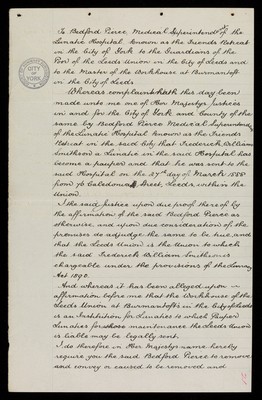 To Bedford Pierce Medical Superintendent of the
Lunatic Hospital known as the Friends Retreat
in the City of York to the Guardians of the
Poor of the Leeds Union in the City of Leeds and
to the Master of the Workhouse at Burmantofts
in the City of Leeds
CITY
OF
YORK
Whereas complaint hath this day been
made unto me one of Her Majestys Justices
in and for the City of York and County of the
same by Bedford Pierce Medical Superintendent
of the Lunatic Hospital known as the Friends
Retreat in the said City that Frederick William
Smithson a Lunatic in the said Hospital has
become a pauper and that he was sent to the
said Hospital on the 27th day of March 1888
from 76 Caledonia Street, Leeds, within the
Union.
I the said Justice upon due proof thereof by
the affirmation of the said Bedford Pierce as
otherwise, and upon due consideration of the
premises do adjudge the same to be true, and
that the Leeds Union is the Union to which
the said Frederick William Smithson is
chargeable under the provisions of the Lunacy
Act 1890.
And whereas it has been alleged upon
affirmation before me that the Workhouse of the
Leeds Union at Burmantofts in the City of Leeds
is an Institution for Lunatics to which Pauper
Lunatics for whose maintenance the Leeds Union
is liable may be legally sent.
I do therefore in Her Majestys name hereby
require you the said Bedford Pierce to remove
and convey or caused to be removed and